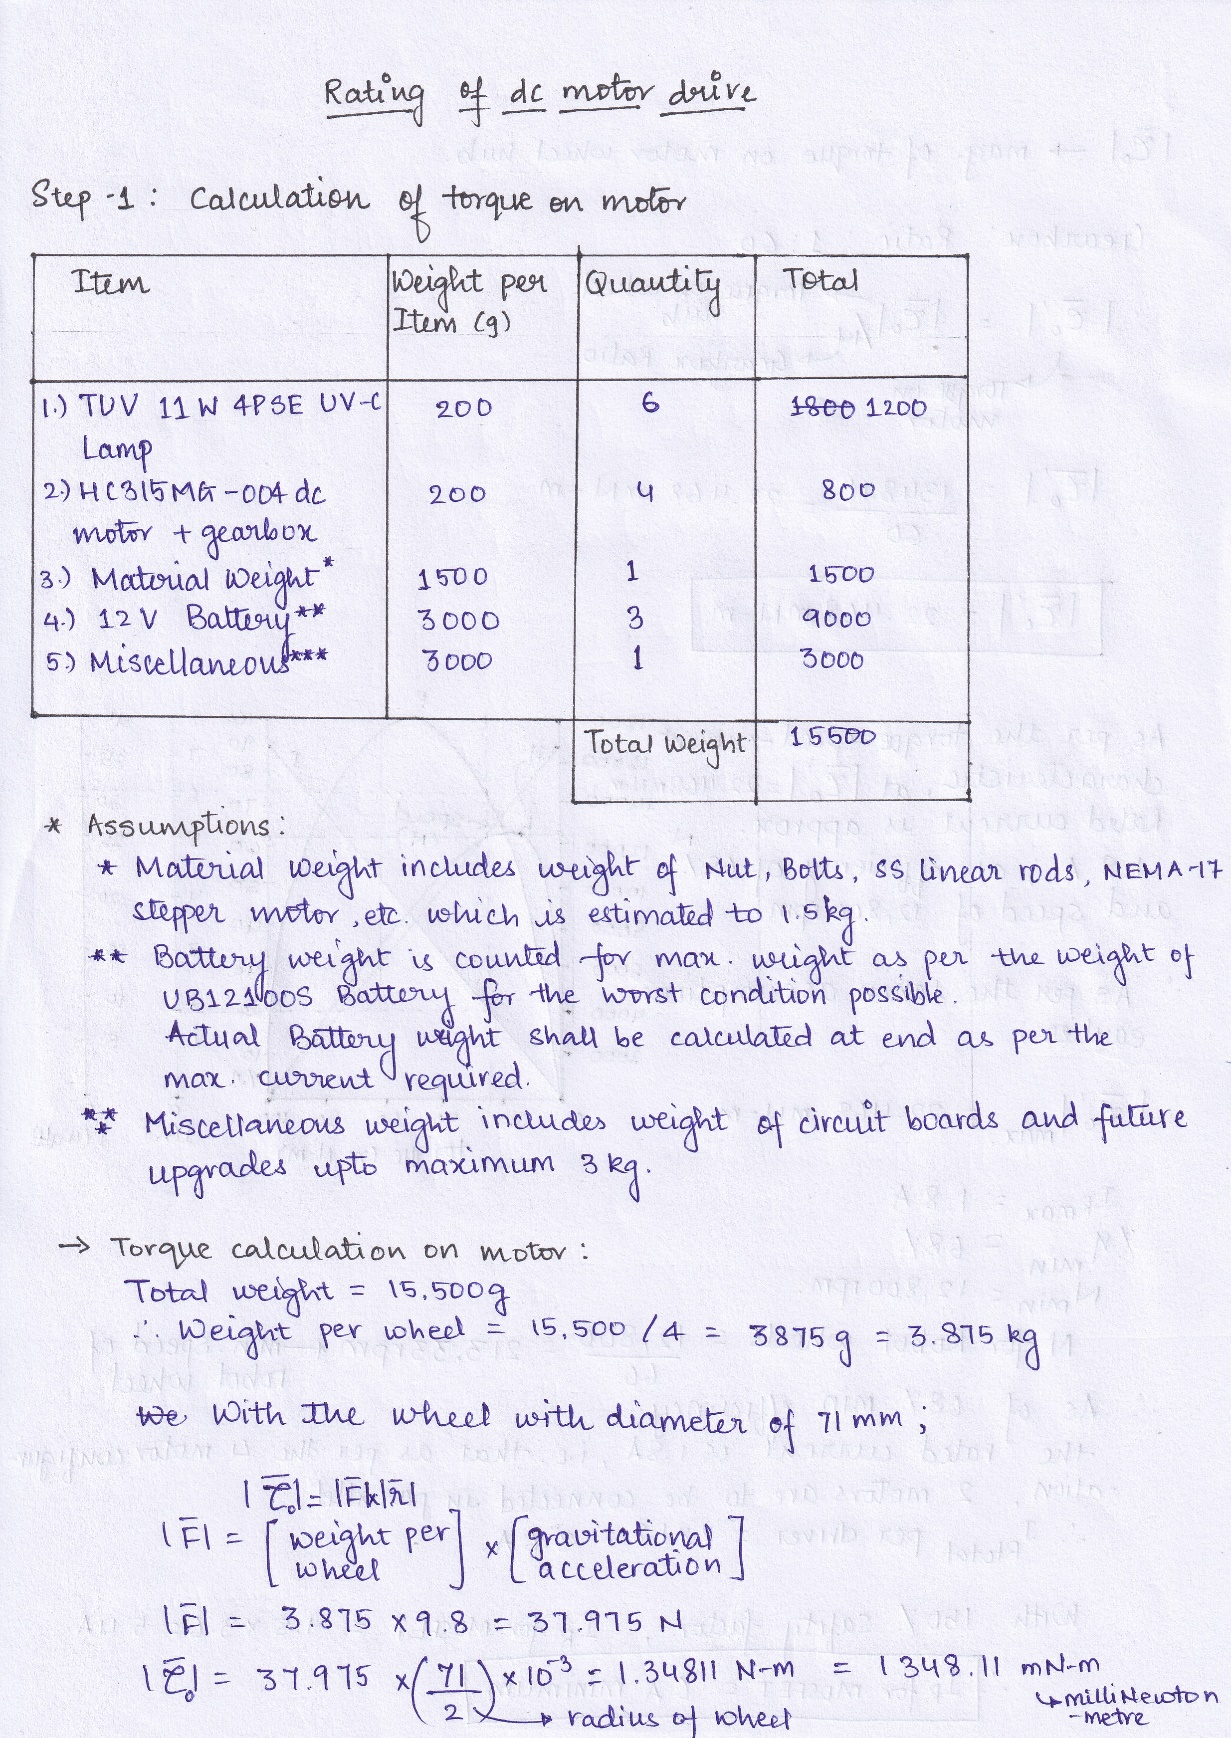 Rating of dc motor drive
Step -1 : Calculation of torque on motor
Item | Weight per Item (g) | Quantity | Total
1.) TUV 11 W 4PSE UV-C Lamp | 200 | 6 | ~~1800~~ 1200
2.) HC315MG-004 dc motor + gearbox | 200 | 4 | 800
3.) Material Weight* | 1500 | 1 | 1500
4.) 12 V Battery** | 3000 | 3 | 9000
5.) Miscellaneous*** | 3000 | 1 | 3000
Total Weight | 15500
* Assumptions :
* Material weight includes weight of Nut, Bolts, SS linear rods, NEMA-17
stepper motor, etc. which is estimated to 1.5kg.
** Battery weight is counted for max. weight as per the weight of
UB12100S Battery for the worst condition possible.
Actual Battery weight shall be calculated at end as per the
max. current required.
*** Miscellaneous weight includes weight of circuit boards and future
upgrades upto maximum 3 kg.
→ Torque calculation on motor :
Total weight = 15,500g
∴ Weight per wheel = 15,500 / 4 = 3875 g = 3.875 kg
~~We~~ With the wheel with diameter of 71 mm ;
|τ̄₀| = |F̄|x|r̄|
|F̄| = [weight per wheel] x [gravitational acceleration]
|F̄| = 3.875 x 9.8 = 37.975 N
|τ̄₀| = 37.975 x (71/2) x 10⁻³ = 1.34811 N-m = 1348.11 mN-m
↳ milliNewton
-metre
→ radius of wheel